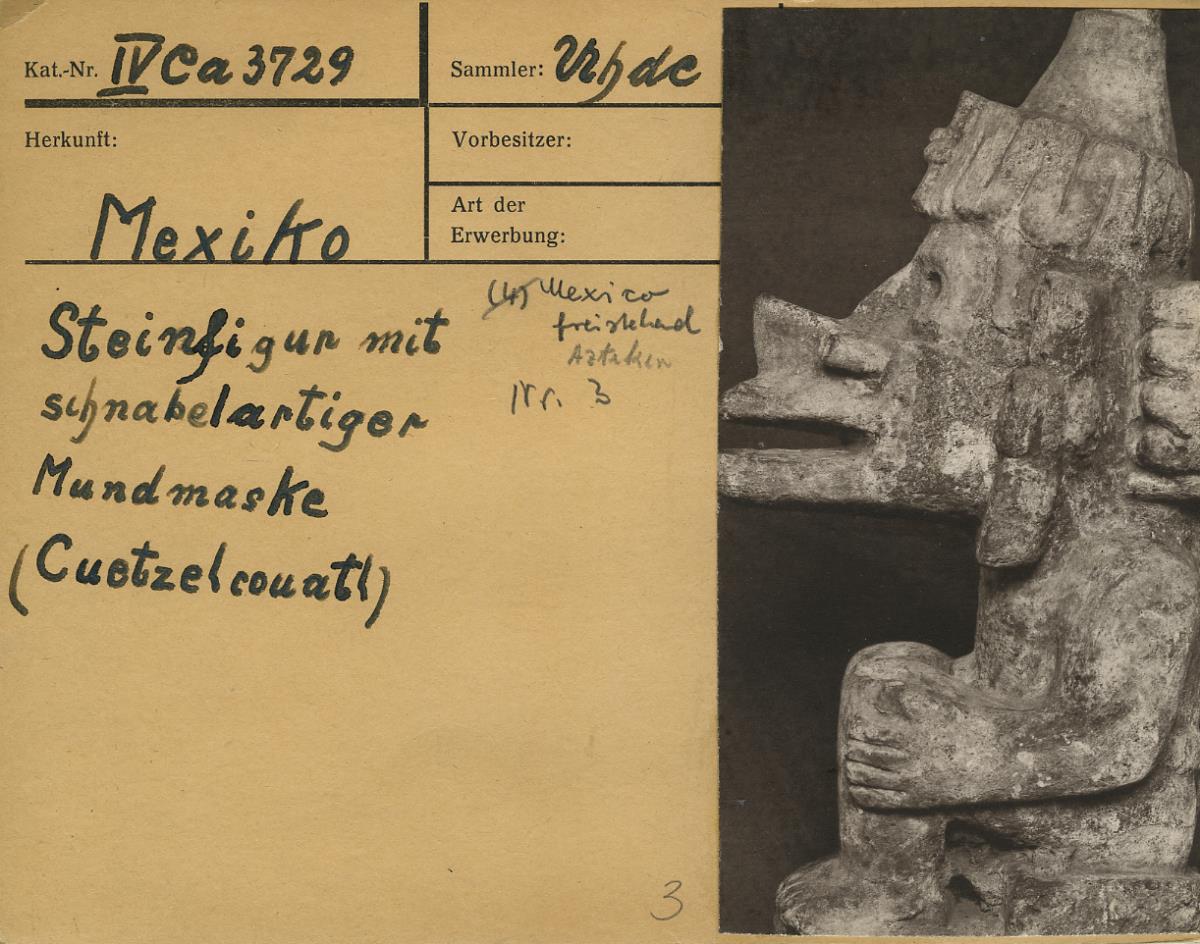 Kat.-Nr. IV Ca 3729
Sammler: Uhde
Herkunft:
Mexiko
Vorbesitzer:
Art der
Erwerbung:
Mexico
freistehend
Azteken
Nr. 3
Steinfigur mit
schnabelartiger
Mundmaske
(Cuetzelcouatl)
3